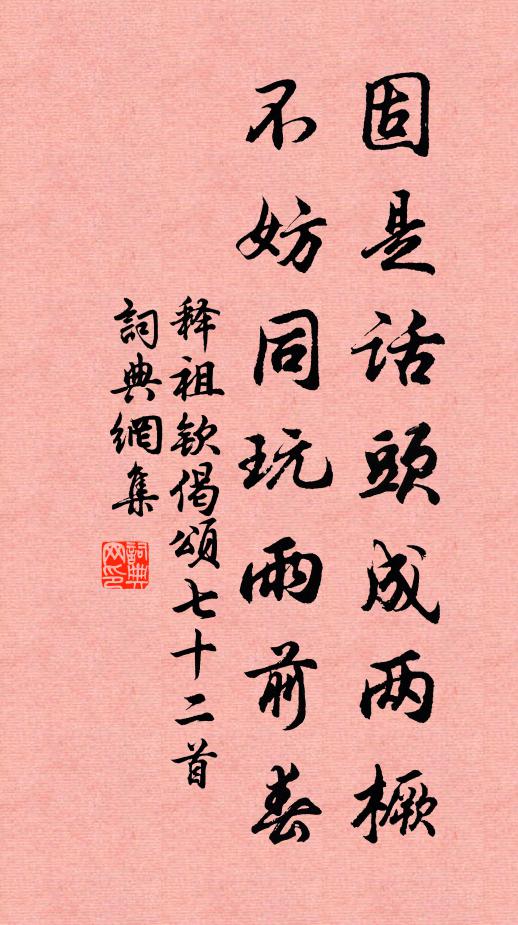 固是话頭成两橛
不妨同玩雨前春
释祖钦偈颂七十二首
詞典網集
詞典網印